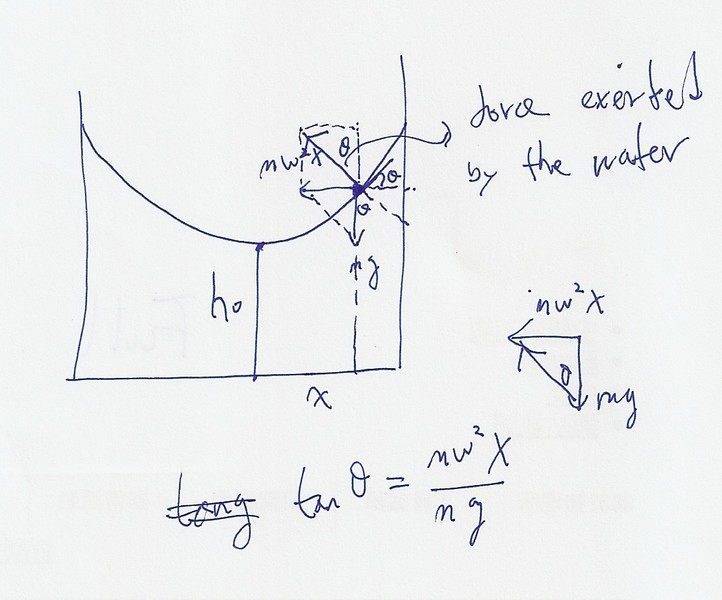 force exerted
by the water
mω²x
θ
θ
θ
mg
h₀
x
mω²x
θ
mg
tang tan θ = mω²x / mg